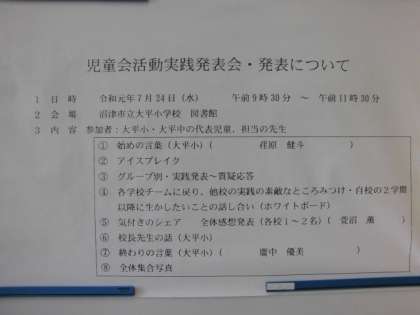 児童会活動実践発表会・発表について
1 日 時 令和元年7月24日(水) 午前9時30分 ~ 午前11時30分
2 会 場 沼津市立大平小学校 図書館
3 内 容 参加者:大平小・大平中の代表児童、担当の先生
① 始めの言葉(大平小)( 荏原 健斗 )
② アイスブレイク
③ グループ別・実践発表~質疑応答
④ 各学校チームに戻り、他校の実践の素敵なところみつけ・自校の2学期
以降に生かしたいことの話し合い(ホワイトボード)
⑤ 気付きのシェア 全体感想発表(各校1~2名)( 菅沼 薫 )
⑥ 校長先生の話(大平小)
⑦ 終わりの言葉(大平小)( 廣中 優美 )
⑧ 全体集合写真